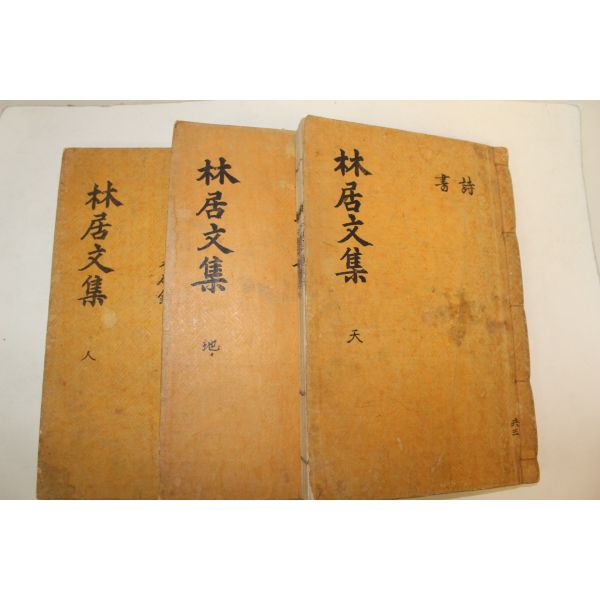 林居文集
天
詩
書
共三
林居文集
地
林居文集
人